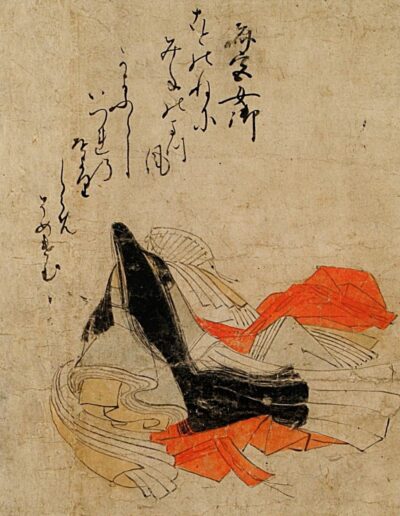 斎宮女御
ことのねに
みねのまつ
風
かよふらし
いつれの
をより
しらへ
そめけむ